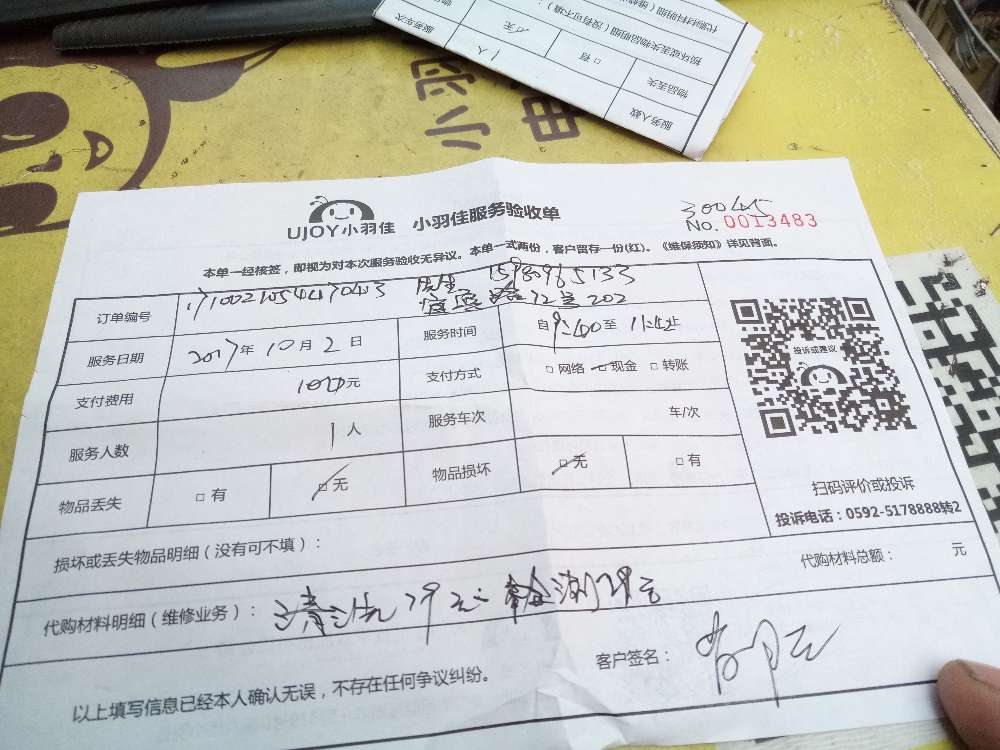 代购材料明细(维修
损坏或丢失物品明细(没有可不填):
服务车次
1人
元
□有
物品丢失
服务人数
小羽
电
UJOY小羽佳 小羽佳服务验收单
300405
No. 0013483
本单一经接签,即视为对本次服务验收无异议。本单一式两份,客户留存一份(红)。《维保须知》详见背面。
订单编号
15980965133
12号202
服务日期 2017年10月2日 服务时间 自9:40至11:42止
支付费用 100元 支付方式 □网络 □现金 □转账
服务人数 1人 服务车次 车/次
物品丢失 □有 □无 物品损坏 □无 □有
投诉或建议
扫码评价或投诉
投诉电话:0592-5178888转2
损坏或丢失物品明细(没有可不填):
代购材料总额: 元
代购材料明细(维修业务): 清洗79元 检测29元
客户签名:
以上填写信息已经本人确认无误,不存在任何争议纠纷。